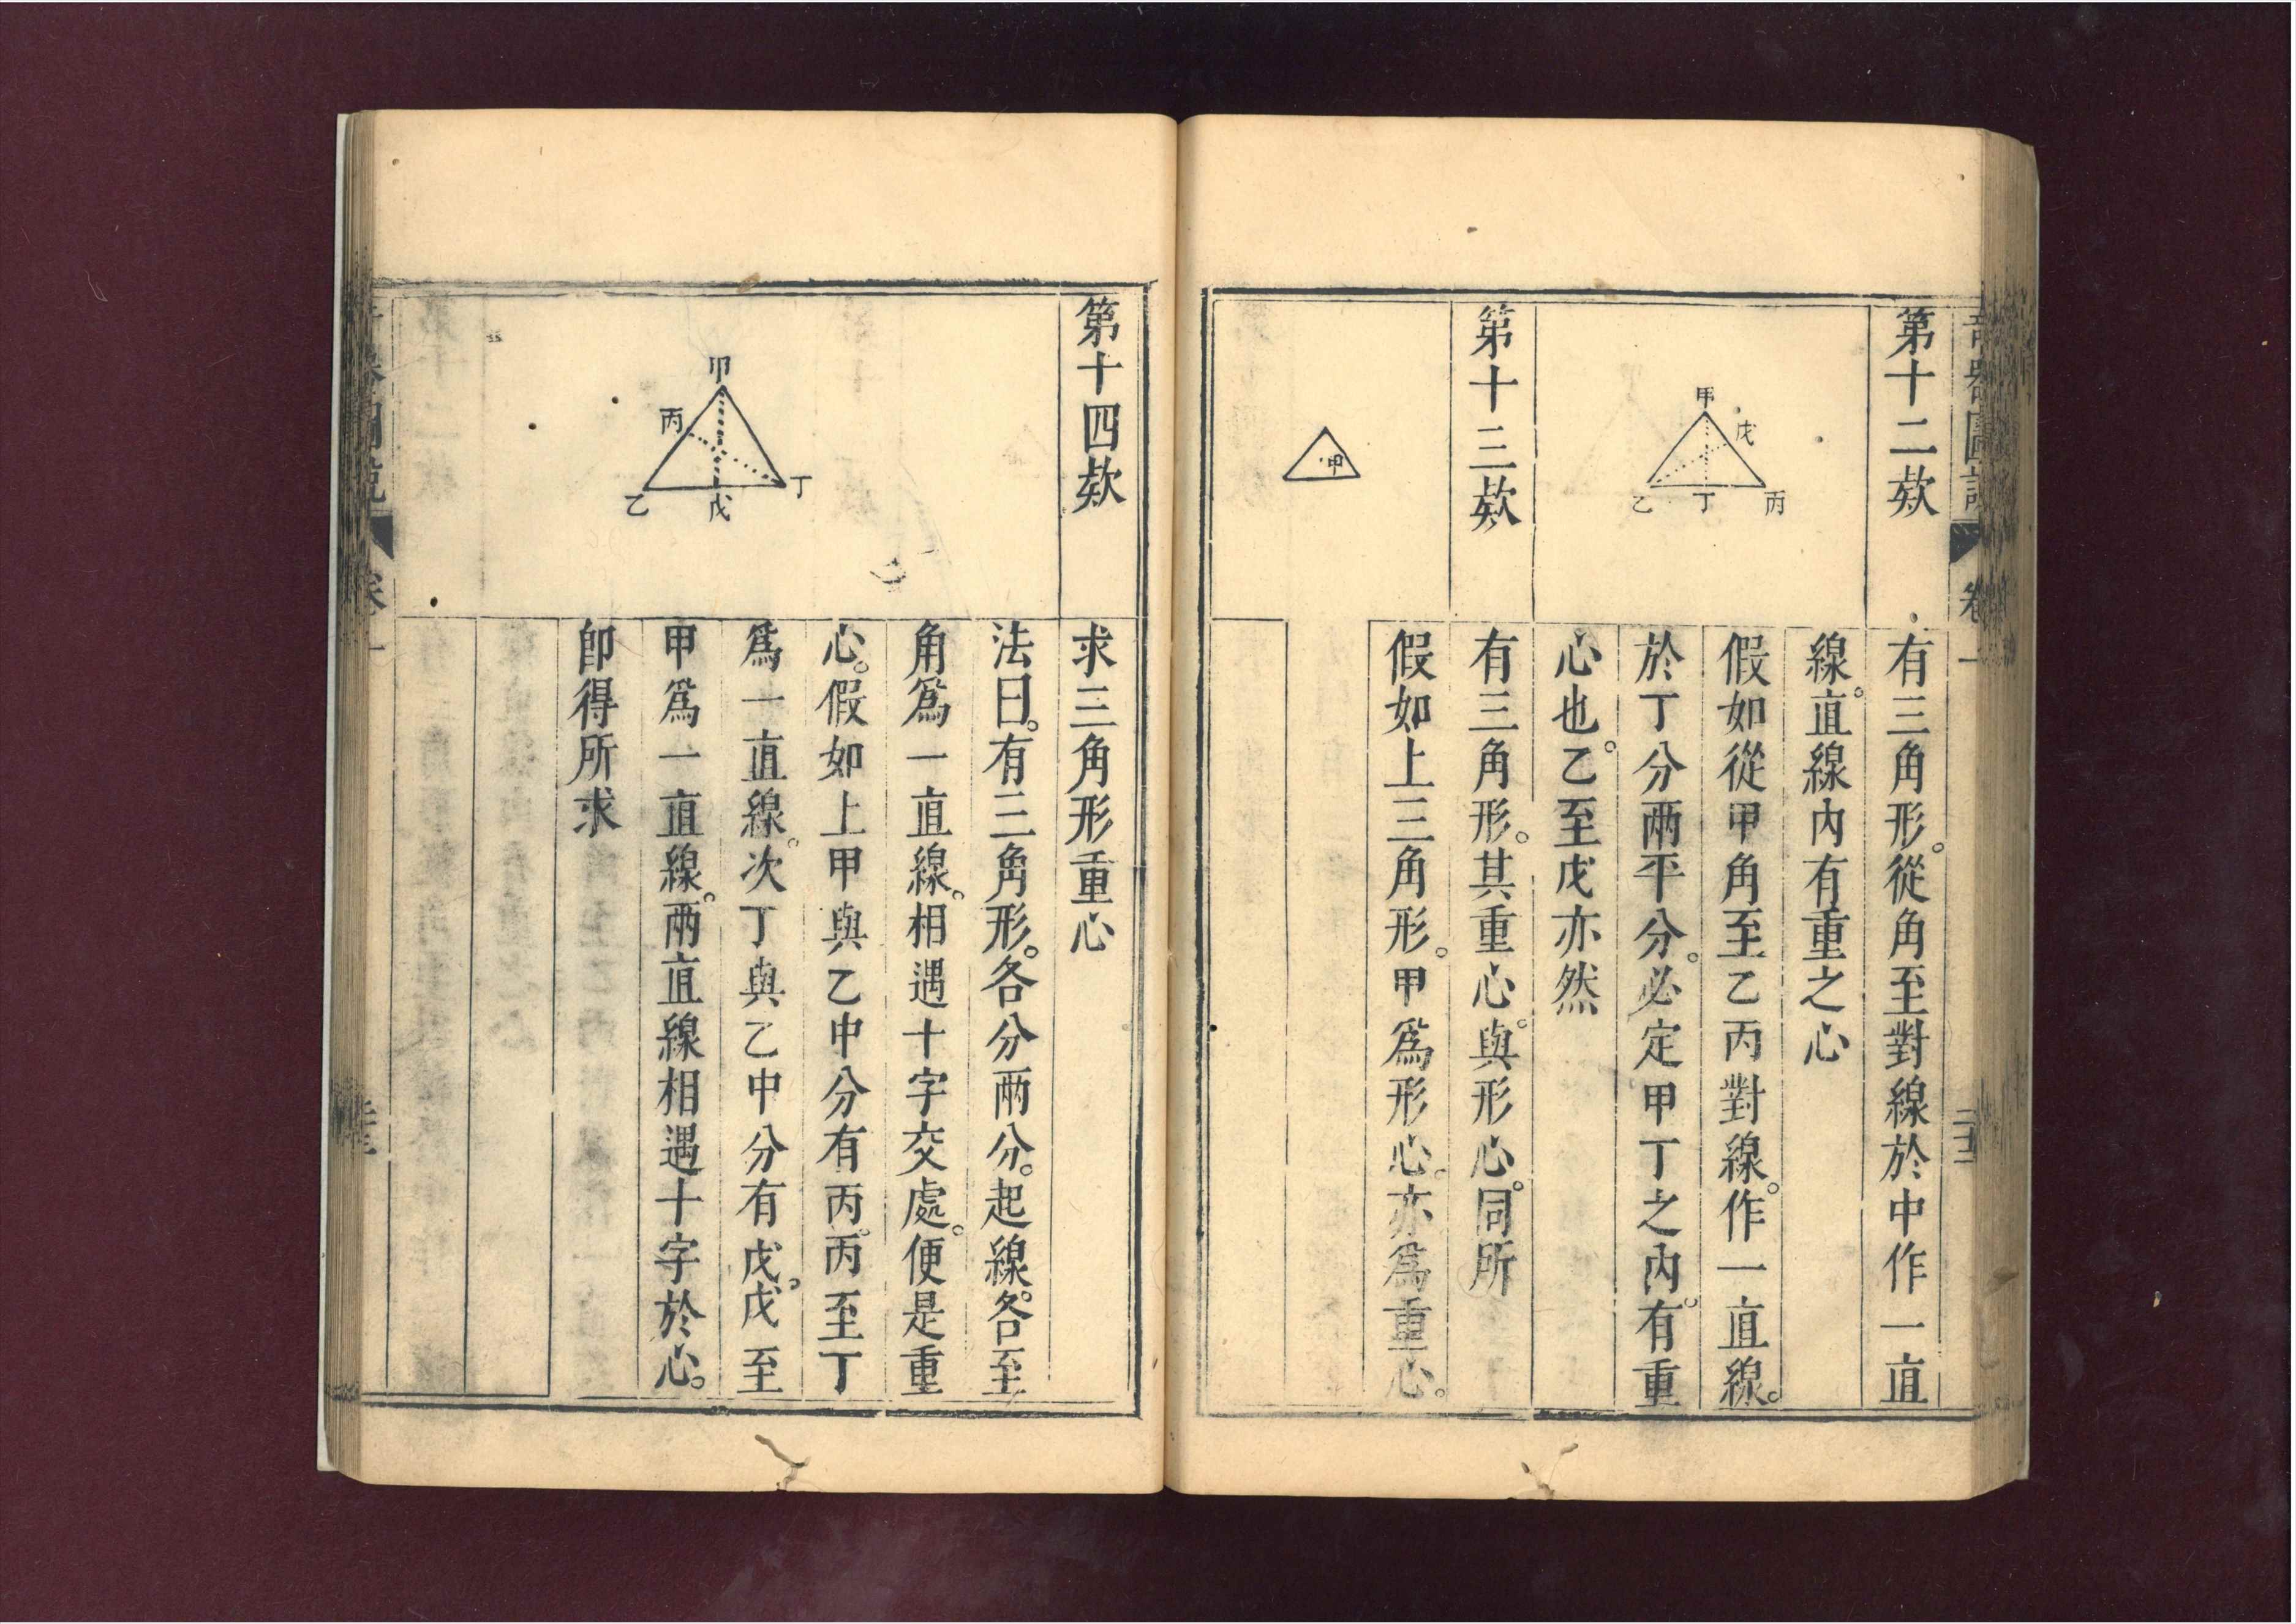 第十二欵
甲
戊
乙
丁
丙
有三角形。從角至對線於中作一直
線。直線內有重之心
假如從甲角至乙丙對線。作一直線。
於丁分兩平分。必定甲丁之內。有重
心也。乙至戊亦然
第十三欵
甲
有三角形。其重心。與形心。同所
假如上三角形。甲爲形心。亦爲重心。
第十四欵
甲
丙
乙
戊
丁
求三角形重心
法曰。有三角形。各分兩分。起線。各至
角爲一直線。相遇十字交處。便是重
心。假如上甲與乙中分有丙。丙至丁
爲一直線。次丁與乙中分有戊。戊至
甲爲一直線。兩直線相遇十字於心。
卽得所求
卷一